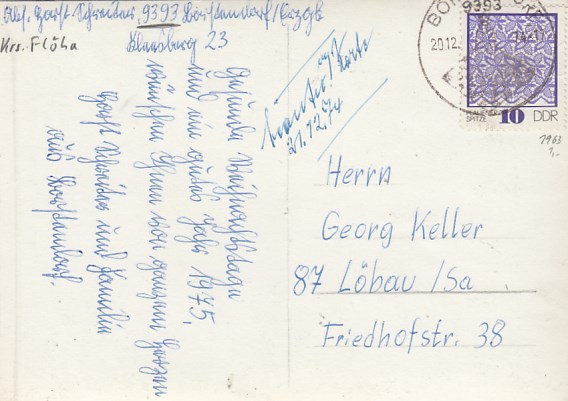 Abs. Horst Schreiter, 9393 Borstendorf/Erzgb
Krs. Flöha
23
Gesunde Weihnachtstage
und ein gutes Jahr 1975,
wünschen Ihnen von ganzem Herzen
Horst Schreiter und Familie
aus Borstendorf.
Karte
21.12.74
9393
20.12.
SPITZE 10 DDR
1963
1,-
Herrn
Georg Keller
87 Löbau /Sa
Friedhofstr. 38